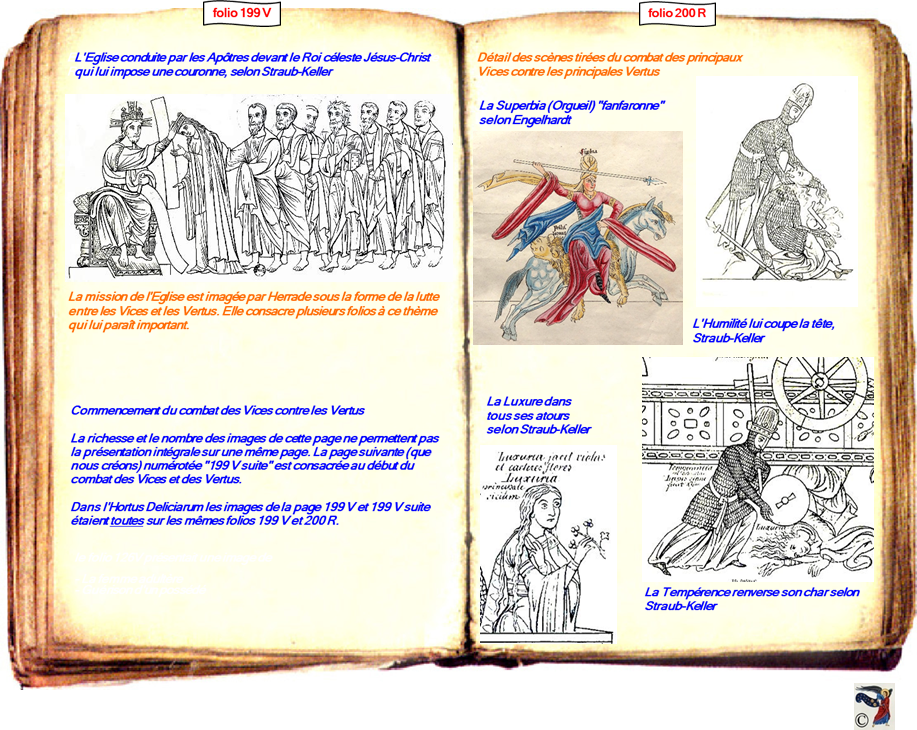 folio 199 V
L'Eglise conduite par les Apôtres devant le Roi céleste Jésus-Christ
qui lui impose une couronne, selon Straub-Keller
La mission de l'Eglise est imagée par Herrade sous la forme de la lutte
entre les Vices et les Vertus. Elle consacre plusieurs folios à ce thème
qui lui paraît important.
Commencement du combat des Vices contre les Vertus
La richesse et le nombre des images de cette page ne permettent pas
la présentation intégrale sur une même page. La page suivante (que
nous créons) numérotée "199 V suite" est consacrée au début du
combat des Vices et des Vertus.
Dans l'Hortus Deliciarum les images de la page 199 V et 199 V suite
étaient toutes sur les mêmes folios 199 V et 200 R.
folio 200 R
Détail des scènes tirées du combat des principaux
Vices contre les principales Vertus
La Superbia (Orgueil) "fanfaronne"
selon Engelhardt
L'Humilité lui coupe la tête,
Straub-Keller
La Luxure dans
tous ses atours
selon Straub-Keller
Luxuria jacit violas
et cæteros flores
Luxuria
La Tempérence renverse son char selon
Straub-Keller
©